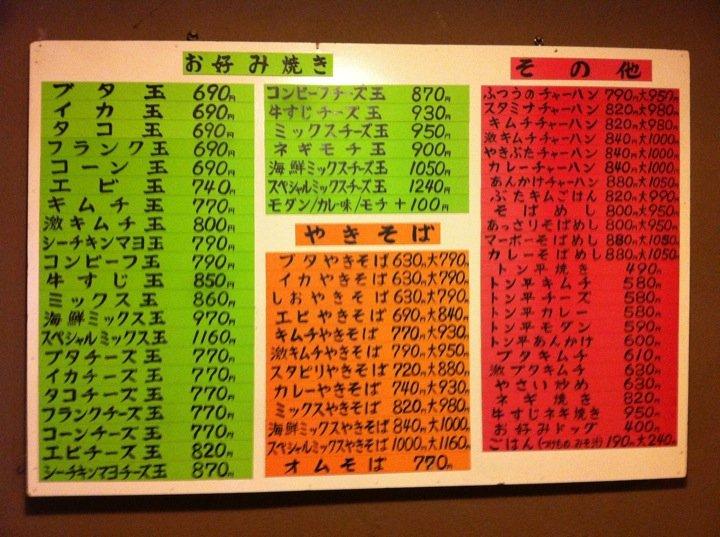 お好み焼き
ブタ玉 690円
イカ玉 690円
タコ玉 690円
フランク玉 690円
コーン玉 690円
エビ玉 740円
キムチ玉 770円
激キムチ玉 800円
シーチキンマヨ玉 790円
コンビーフ玉 790円
牛すじ玉 850円
ミックス玉 860円
海鮮ミックス玉 970円
スペシャルミックス玉 1160円
ブタチーズ玉 770円
イカチーズ玉 770円
タコチーズ玉 770円
フランクチーズ玉 770円
コーンチーズ玉 770円
エビチーズ玉 820円
シーチキンマヨチーズ玉 870円
コンビーフチーズ玉 870円
牛すじチーズ玉 930円
ミックスチーズ玉 950円
ネギモチ玉 900円
海鮮ミックスチーズ玉 1050円
スペシャルミックスチーズ玉 1240円
モダン/カレー味/モチ+100円
やきそば
ブタやきそば 630円大790円
イカやきそば 630円大790円
しおやきそば 630円大790円
エビやきそば 690円大840円
キムチやきそば 770円大930円
激キムチやきそば 790円大950円
スタピリやきそば 720円大880円
カレーやきそば 740円大930円
ミックスやきそば 820円大980円
海鮮ミックスやきそば 840円大1000円
スペシャルミックスやきそば 1000円大1160円
オムそば 770円
その他
ふつうのチャーハン 790円大950円
スタミナチャーハン 820円大980円
キムチチャーハン 820円大980円
激キムチチャーハン 840円大1000円
やきぶたチャーハン 840円大1000円
カレーチャーハン 840円大1000円
あんかけチャーハン 880円大1050円
ぶたキムごはん 820円大990円
そばめし 800円大950円
あっさりそばめし 800円大950円
マーボーそばめし 880円大1050円
カレーそばめし 880円大1050円
トン平焼き 490円
トン平キムチ 580円
トン平チーズ 580円
トン平カレー 580円
トン平モダン 590円
トン平あんかけ 600円
ブタキムチ 610円
激ブタキムチ 630円
やさい炒め 630円
ネギ焼き 820円
牛すじネギ焼き 950円
お好みドッグ 400円
ごはん(つけもの みそ汁) 190円大240円